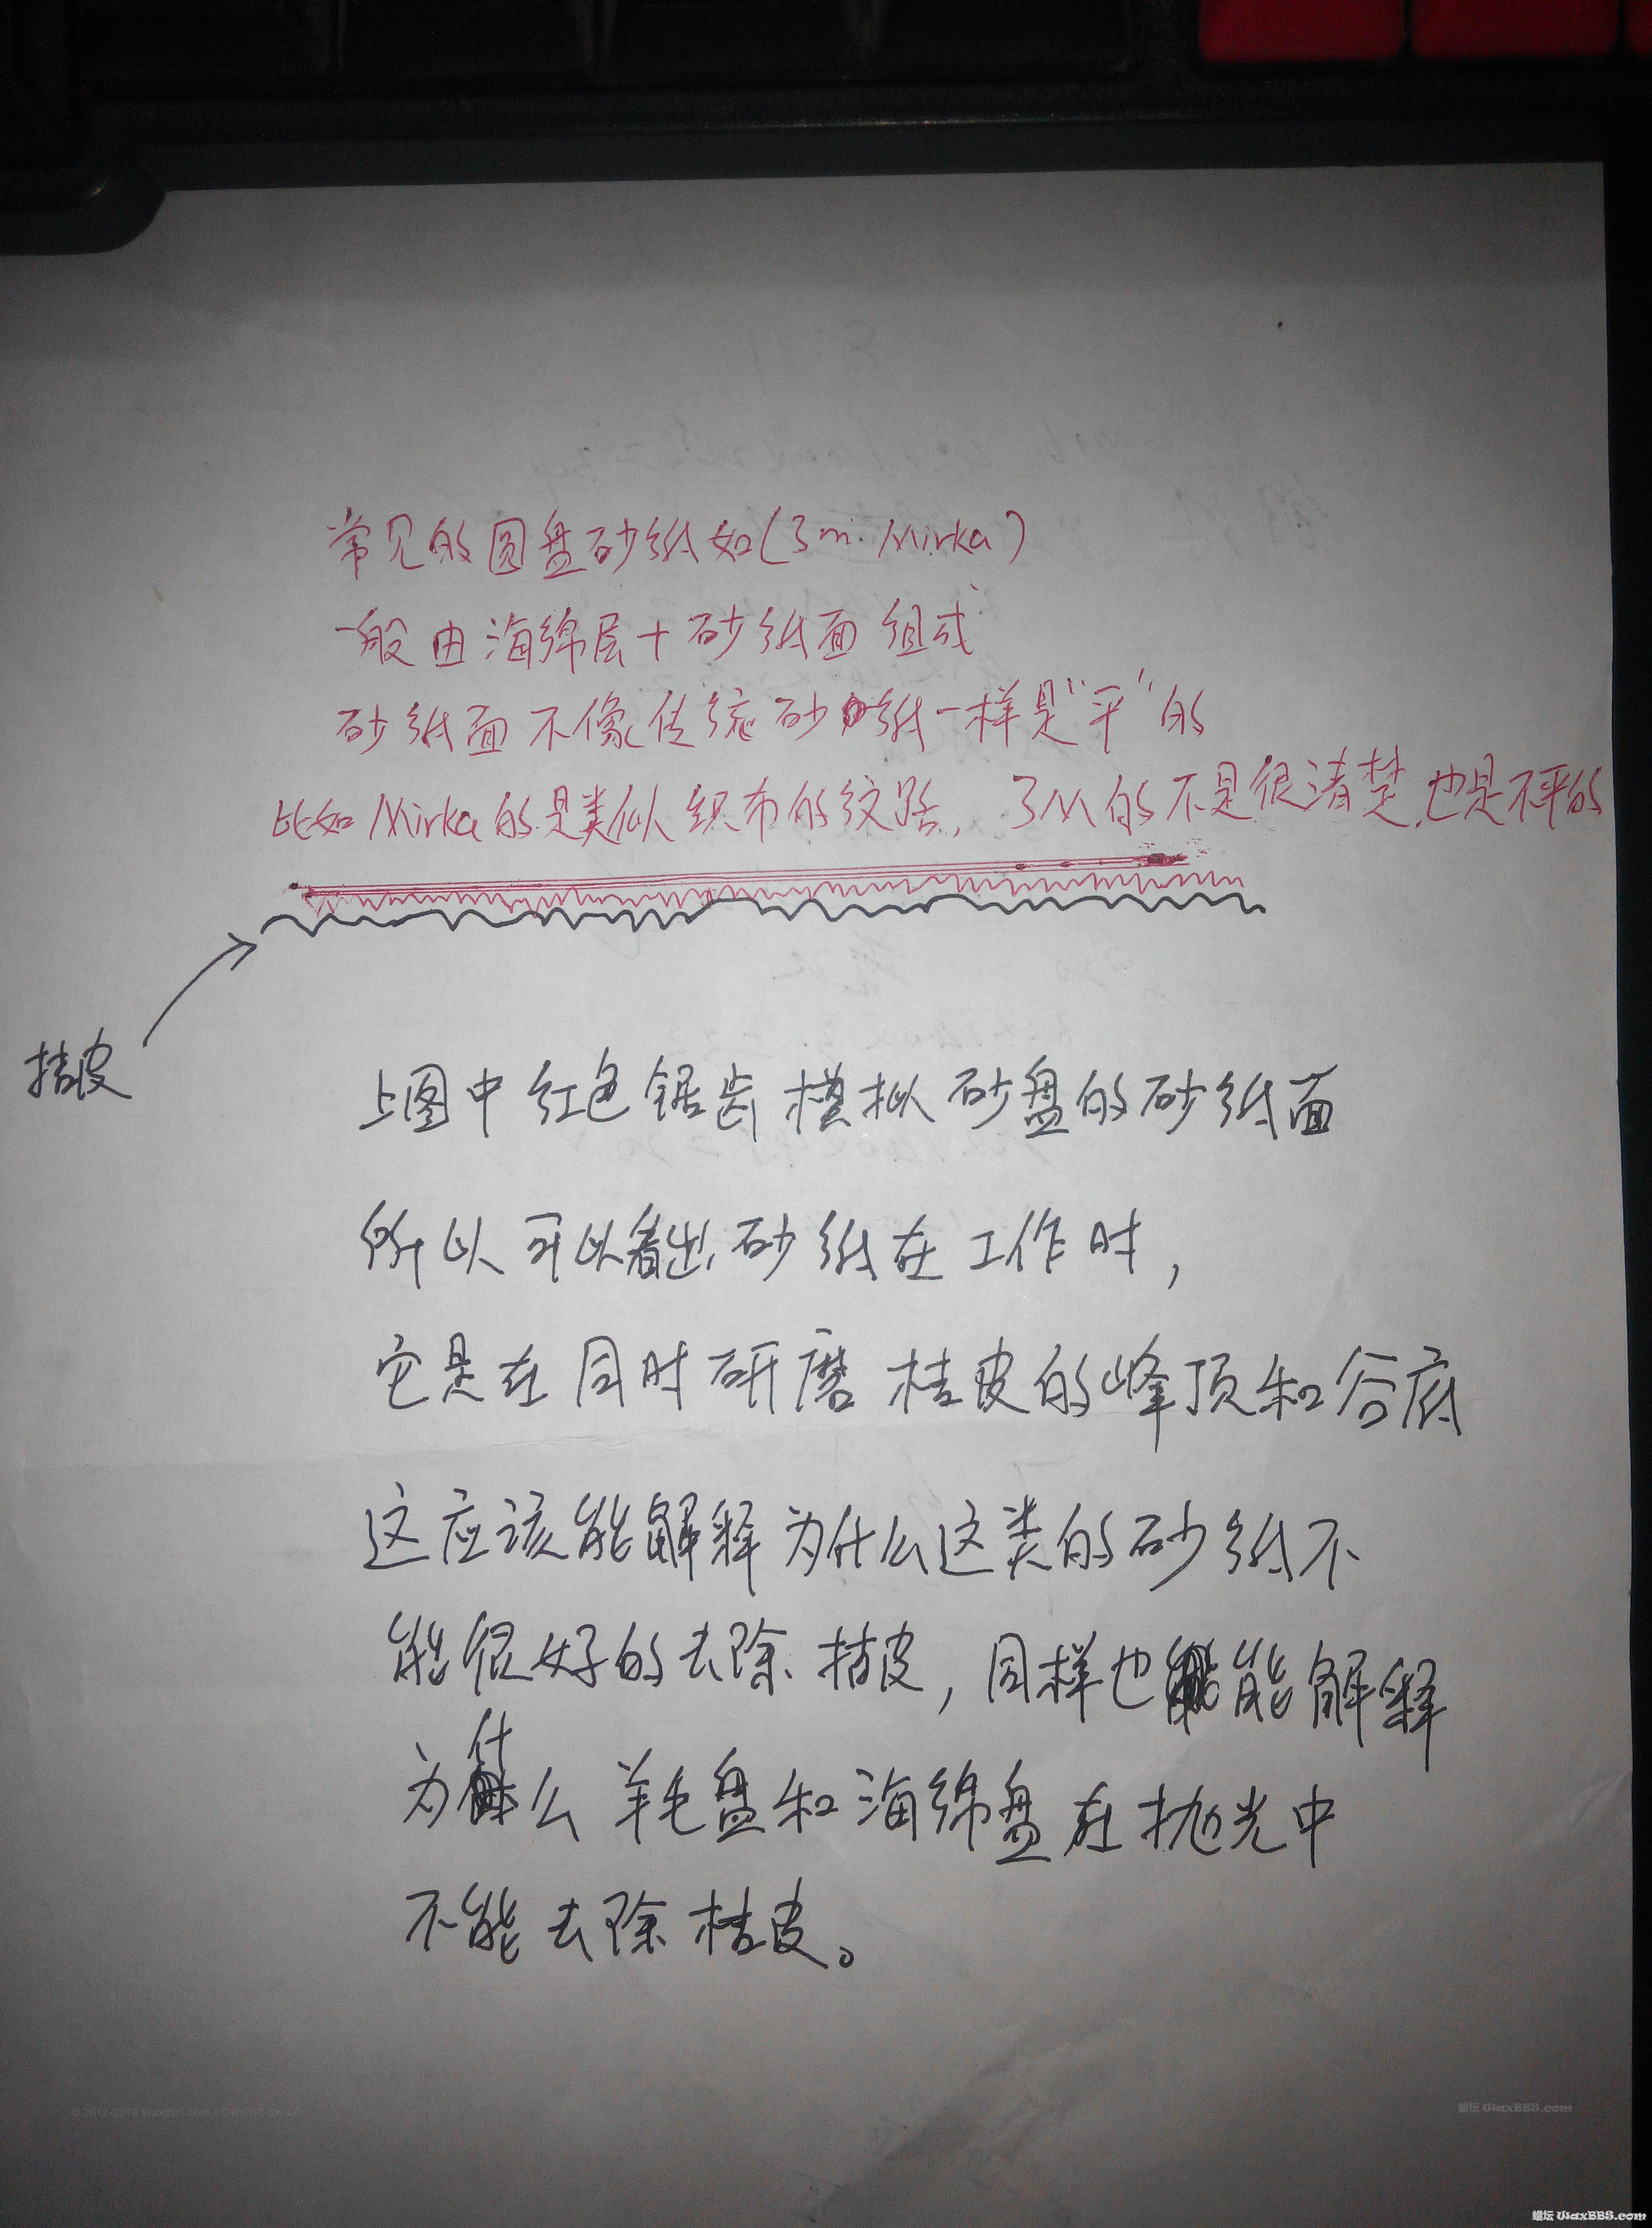 常见的圆盘砂纸如(3m. Mirka)
一般由海绵层+砂纸面组成
砂纸面不像传统砂纸一样是"平"的
比如Mirka的是类似织布的纹路, 3M的不是很清楚,也是不平的
桔皮
上图中红色锯齿模拟砂盘的砂纸面
所以可以看出,砂纸在工作时,
它是在同时研磨桔皮的峰顶和谷底
这应该能解释为什么这类的砂纸不
能很好的去除桔皮,同样也能解释
为什么羊毛盘和海绵盘在抛光中
不能去除桔皮。
© 2012-2018 WaxBBS.com,CC-BY-NC-SA 4.0
蜡坛 WaxBBS.com
蜡坛 WaxBBS.com